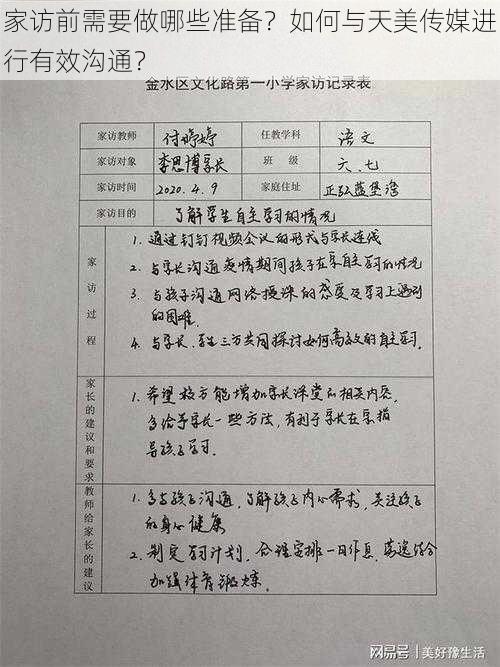 家访前需要做哪些准备？如何与天美传媒进
行有效沟通？
金水区文化路第一小学家访记录表
家访教师 付婷婷 任教学科 语文
家访对象 李思博家长 班 级 六、七
家访时间 2020.4.9 家庭住址 正弘蓝堡湾
家访目的 了解学生自主学习的情况
家访过程
1. 通过钉钉视频会议的形式与家长连线
2. 与家长沟通疫情期间孩子在家自主学习的情况
3. 与孩子沟通网络授课的感受及学习上遇到
的困难.
4. 与家长、学生三方共同探讨如何高效的自主学习.
家长的建议和要求
1. 希望校方能增加家长课堂的相关内容,
多给予家长一些方法,有利于家长在家指
导孩子学习.
教师给家长的建议
1. 多与孩子沟通,了解孩子内心需求,关注孩子
的身心健康
2. 制定学习计划,合理安排一日作息,劳逸结合
加强体育锻炼.
网易号 | 美好豫生活